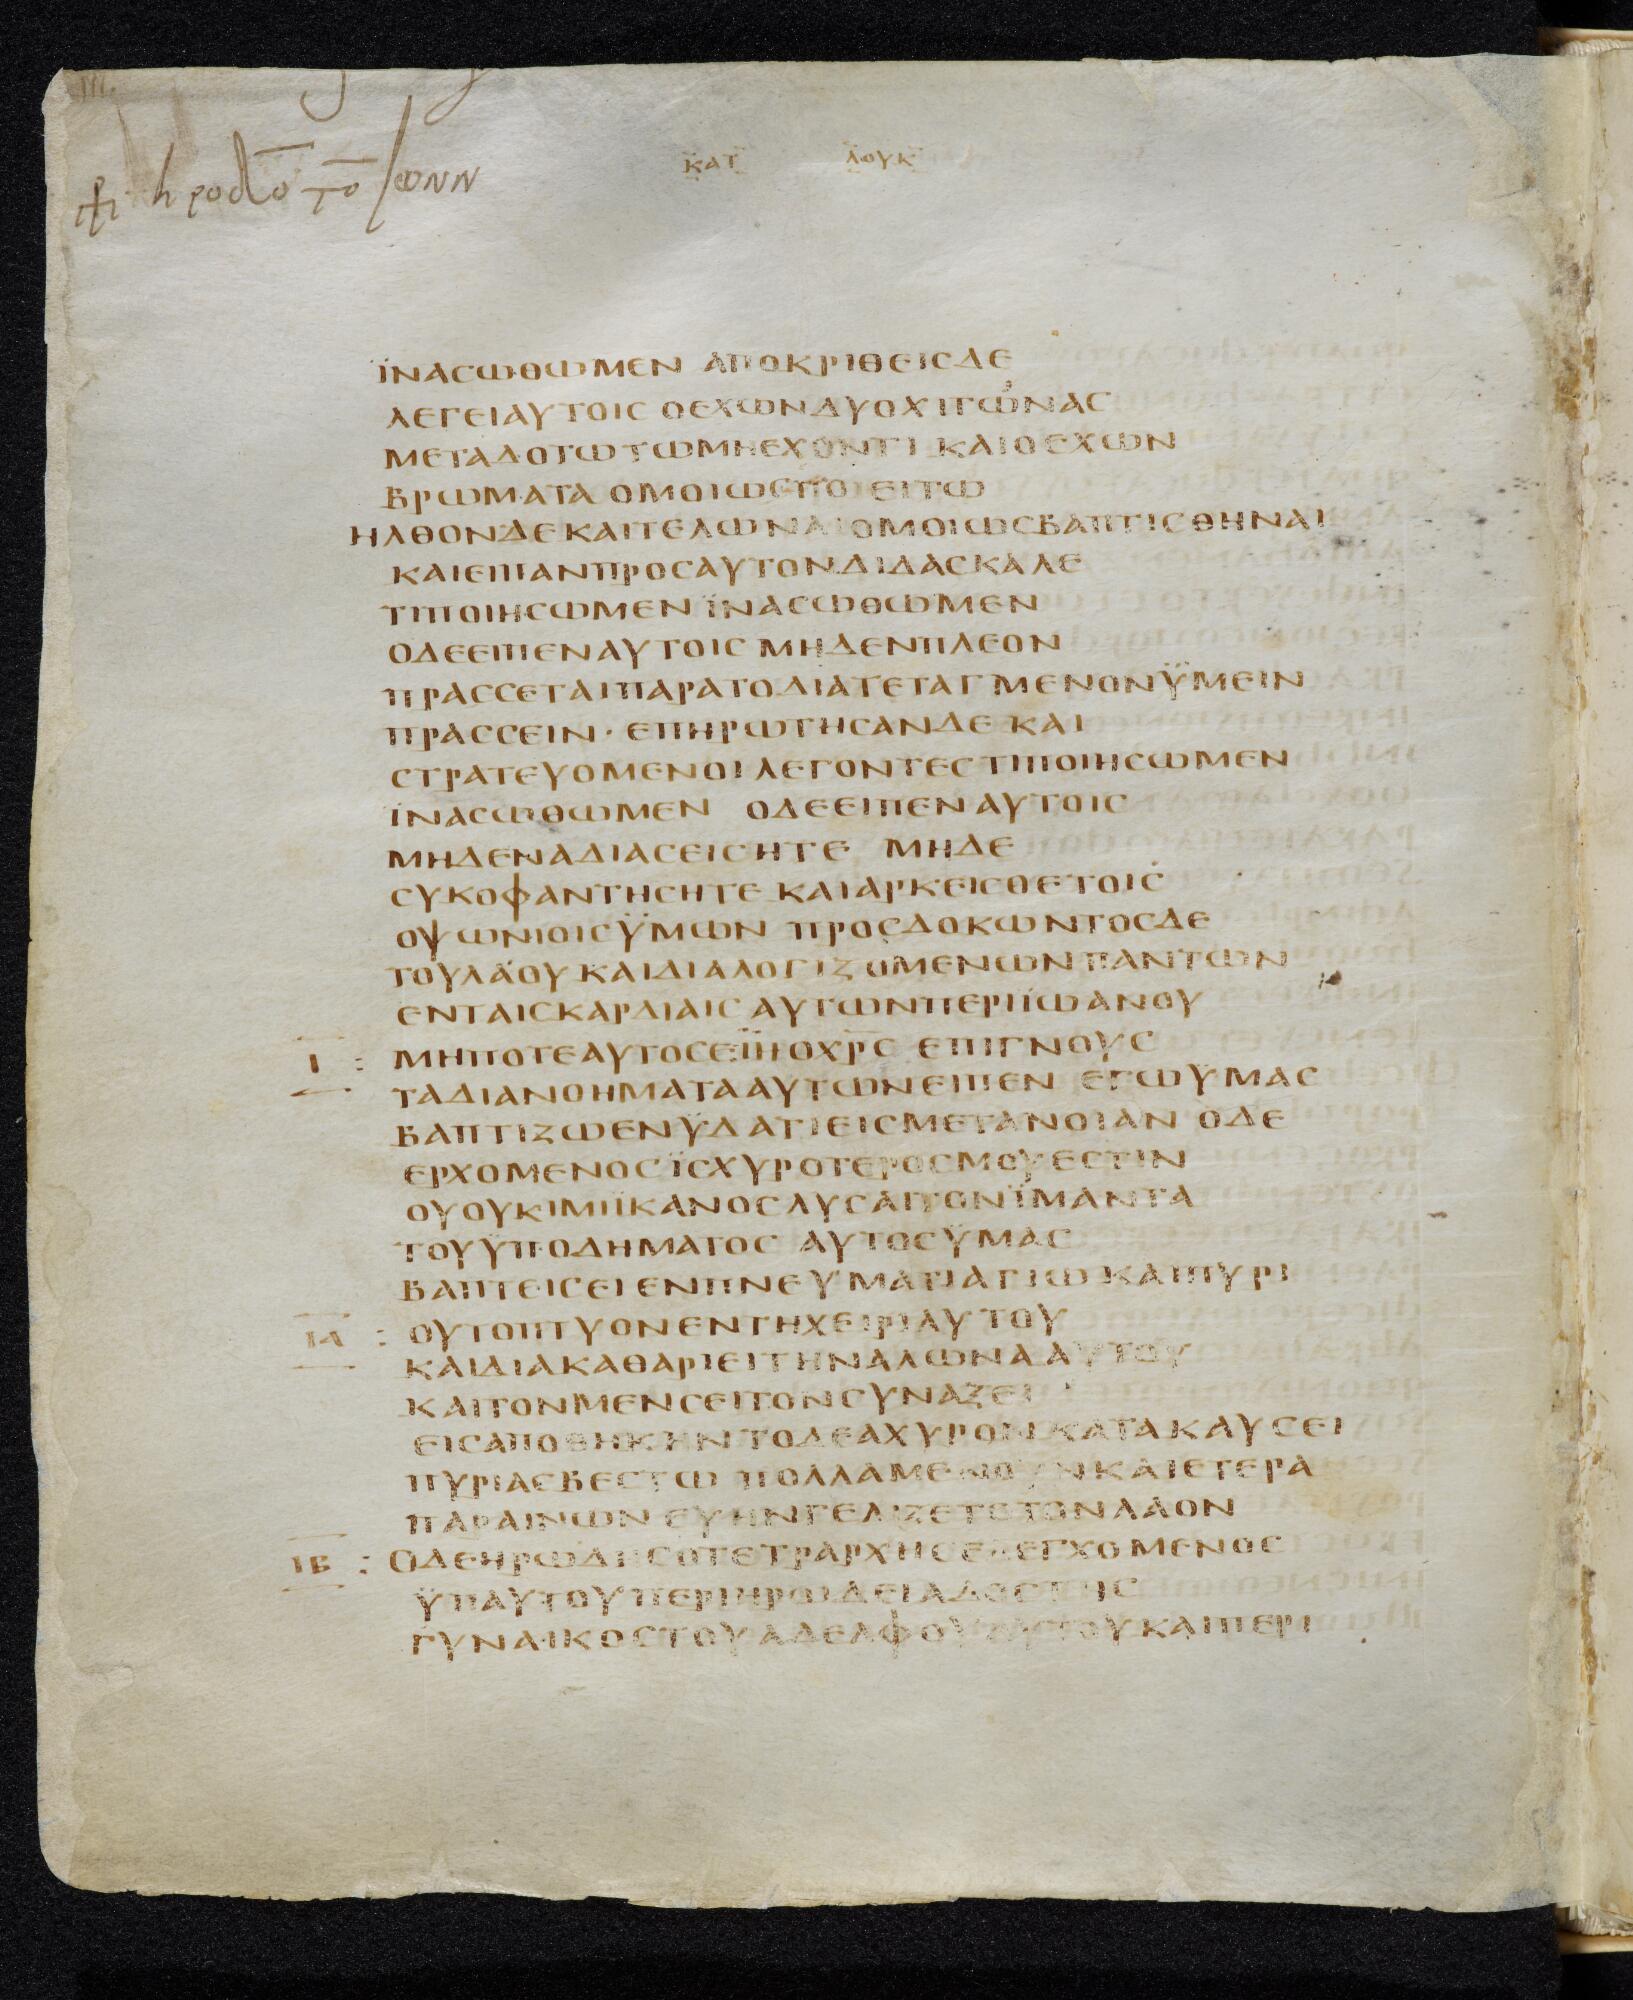 ΚΑΤ ΛΟΥΚ
ΪΝΑСΩΘΩΜΕΝ ΑΠΟΚΡΙΘΕΙСΔΕ
ΛΕΓΕΙΑΥΤΟΙС ΟΕΧΩΝΔΥΟΧΙΤΩΝΑС
ΜΕΤΑΔΟΤΩΤΩΜΗΕΧΟΝΤΙ ΚΑΙΟΕΧΩΝ
ΒΡΩΜΑΤΑ ΟΜΟΙΩСΠΟΙΕΙΤΩ
ΗΛΘΟΝΔΕΚΑΙΤΕΛΩΝΑΙΟΜΟΙΩСΒΑΠΤΙСΘΗΝΑΙ
ΚΑΙΕΙΠΑΝΠΡΟСΑΥΤΟΝΔΙΔΑСΚΑΛΕ
ΤΙΠΟΙΗСΩΜΕΝ ΪΝΑСΩΘΩΜΕΝ
ΟΔΕΕΙΠΕΝΑΥΤΟΙС ΜΗΔΕΝΠΛΕΟΝ
ΠΡΑССΕΤΑΙΠΑΡΑΤΟΔΙΑΤΕΤΑΓΜΕΝΟΝΫΜΕΙΝ
ΠΡΑССΕΙΝ· ΕΠΗΡΩΤΗСΑΝΔΕ ΚΑΙ
СΤΡΑΤΕΥΟΜΕΝΟΙ ΛΕΓΟΝΤΕСΤΙΠΟΙΗСΩΜΕΝ
ΪΝΑСΩΘΩΜΕΝ ΟΔΕΕΙΠΕΝΑΥΤΟΙС
ΜΗΔΕΝΑΔΙΑСΕΙСΗΤΕ ΜΗΔΕ
СΥΚΟΦΑΝΤΗСΗΤΕ ΚΑΙΑΡΚΕΙСΘΕΤΟΙС
ΟΨΩΝΙΟΙСΫΜΩΝ ΠΡΟСΔΟΚΩΝΤΟСΔΕ
ΤΟΥΛΑΟΥΚΑΙΔΙΑΛΟΓΙΖΟΜΕΝΩΝΠΑΝΤΩΝ
ΕΝΤΑΙСΚΑΡΔΙΑΙСΑΥΤΩΝΠΕΡΙΪΩΑΝΟΥ
Ι : ΜΗΠΟΤΕΑΥΤΟСΕΙΗΟΧΡ̅С̅ ΕΠΙΓΝΟΥС
ΤΑΔΙΑΝΟΗΜΑΤΑΑΥΤΩΝΕΙΠΕΝ ΕΓΩΫΜΑС
ΒΑΠΤΙΖΩΕΝΫΔΑΤΙΕΙСΜΕΤΑΝΟΙΑΝ ΟΔΕ
ΕΡΧΟΜΕΝΟСΪСΧΥΡΟΤΕΡΟСΜΟΥΕСΤΙΝ
ΟΥΟΥΚΙΜΙΪΚΑΝΟСΛΥСΑΙΤΟΝΪΜΑΝΤΑ
ΤΟΥΫΠΟΔΗΜΑΤΟС ΑΥΤΟСΫΜΑС
ΒΑΠΤΕΙСΕΙΕΝΠΝΕΥΜΑΤΙΑΓΙΩΚΑΙΠΥΡΙ
ΙΑ : ΟΥΤΟΠΤΥΟΝΕΝΤΗΧΕΙΡΙΑΥΤΟΥ
ΚΑΙΔΙΑΚΑΘΑΡΙΕΙΤΗΝΑΛΩΝΑΑΥΤΟΥ
ΚΑΙΤΟΝΜΕΝСΕΙΤΟΝСΥΝΑΞΕΙ
ΕΙСΑΠΟΘΗΚΗΝΤΟΔΕΑΧΥΡΟΝΚΑΤΑΚΑΥСΕΙ
ΠΥΡΙΑСΒΕСΤΩ ΠΟΛΛΑΜΕΝΟΥΝΚΑΙΕΤΕΡΑ
ΠΑΡΑΙΝΩΝ ΕΥΗΝΓΕΛΙΖΕΤΟΤΟΝΛΑΟΝ
ΙΒ : ΟΔΕΗΡΩΔΗСΟΤΕΤΡΑΡΧΗСΕΛΕΓΧΟΜΕΝΟС
ΫΠΑΥΤΟΥΠΕΡΙΗΡΩΙΔΕΙΑΔΟСΤΗС
ΓΥΝΑΙΚΟСΤΟΥΑΔΕΛΦΟΥΑΥΤΟΥΚΑΙΠΕΡΙ